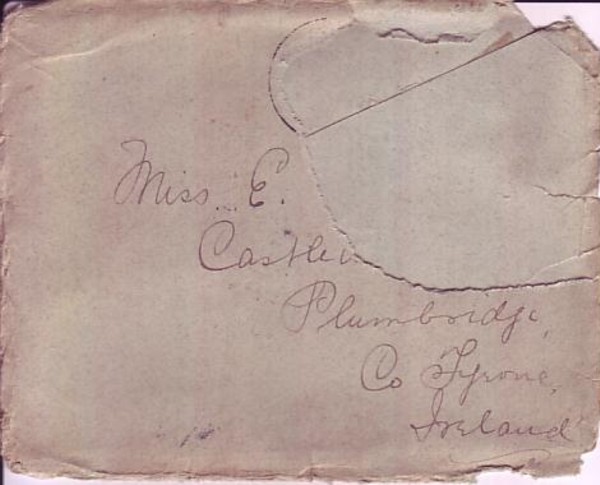 Miss. E.
Plumbridge,
Co Tyrone,
Ireland